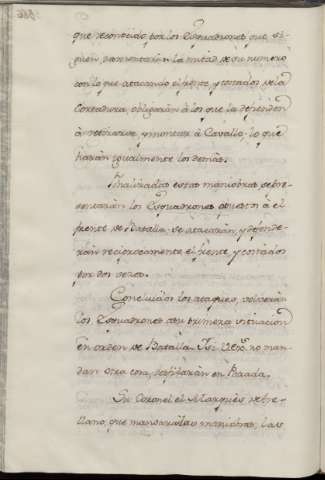 que reconocido, por los Esquadrones que si-
guen, aumentarán la mitad de su numero
con lo que atacando el frente, y costados de la
Cortadura, obligarán à los que la defienden
à retirarse, y montar à Cavallo, lo que
harán igualmente los demás.
Finalizadas estas maniobras se pre-
sentarán los Esquadrones opuestos à el
frente de Batalla, se atacarán, y defende-
rán reciprocamente el frente, y costados
por dos veces.
Concluidos los ataques, volverán
los Esquadrones a su primera situacion
en orden de Batalla. Si V.Exa. no man-
dan otra cosa, desfilarán en Parada.
Su Coronel el Marqués de
llano, que mandará las maniobras, las